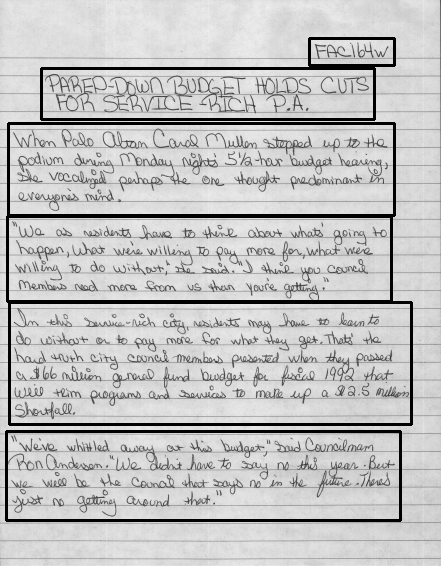 FAC164w
PARED-DOWN BUDGET HOLDS CUTS
FOR SERVICE-RICH P.A.
When Palo Altan Carol Mullen stepped up to the
podium during Monday night's 5½-hour budget hearing,
she vocalized perhaps the one thought predominant in
everyone's mind.
"We as residents have to think about what's going to
happen, what we're willing to pay more for, what we're
willing to do without," she said. "I think you council
members need more from us than you're getting."
In this service-rich city, residents may have to learn to
do without or to pay more for what they get. That's the
hard truth city council members presented when they passed
a $66 million general fund budget for fiscal 1992 that
will trim programs and services to make up a $2.5 million
shortfall.
"We've whittled away at this budget," said Councilman
Ron Anderson. "We didn't have to say no this year. But
we will be the Council that says no in the future. There's
just no getting around that."